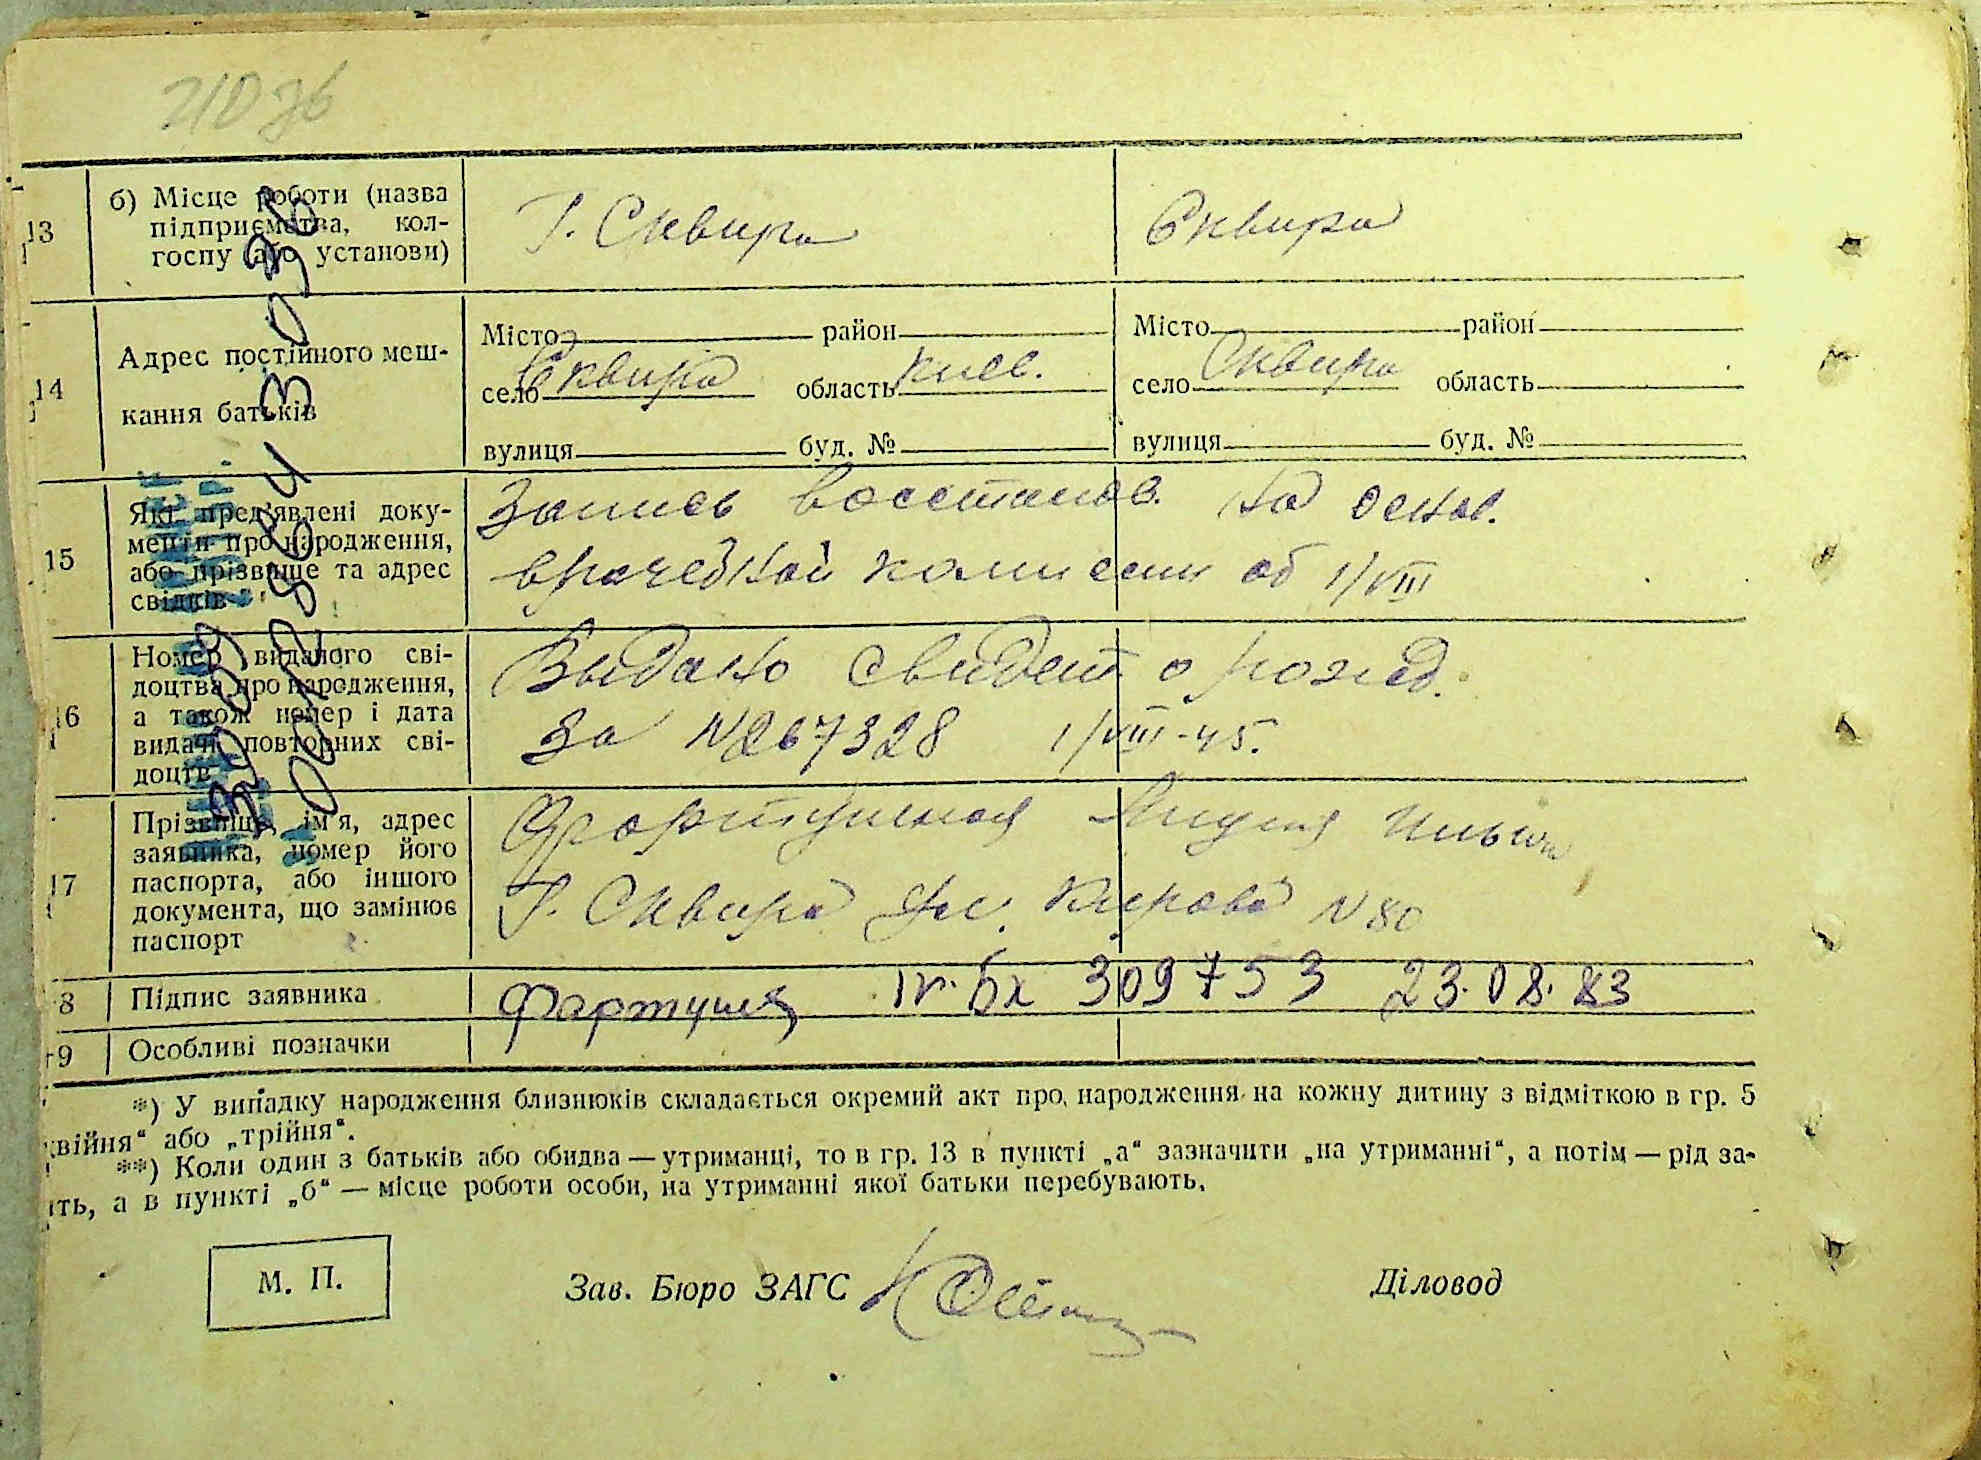 21036
13
б) Місце роботи (назва
підприємства, кол-
госпу або установи)
Г. Сквира
Сквира
14
Адрес постійного меш-
кання батьків
Місто район
село Сквира область Киев.
вулиця буд. №
Місто район
село Сквира область
вулиця буд. №
15
Які пред'явлені доку-
менти про народження,
або прізвище та адрес
свідків
Запись восстанов. на основ.
врачебной комиссии от 1/VIII
16
Номер виданого сві-
доцтва про народження,
а також номер і дата
видачі повторних сві-
доцтв
Выдано свидет. о рожд.
за N267328 1/VIII-45.
17
Прізвище, ім'я, адрес
заявника, номер його
паспорта, або іншого
документа, що замінює
паспорт
Г. Сквира ул. Кирова N 80
8
Підпис заявника
IV-БК 309753 23.08.83
9
Особливі позначки
*) У випадку народження близнюків складається окремий акт про народження на кожну дитину з відміткою в гр. 5
війня“ або „трійня“.
**) Коли один з батьків або обидва — утриманці, то в гр. 13 в пункті „а“ зазначити „на утриманні“, а потім — рід за-
ть, а в пункті „б“ — місце роботи особи, на утриманні якої батьки перебувають.
М. П.
Зав. Бюро ЗАГС
Діловод